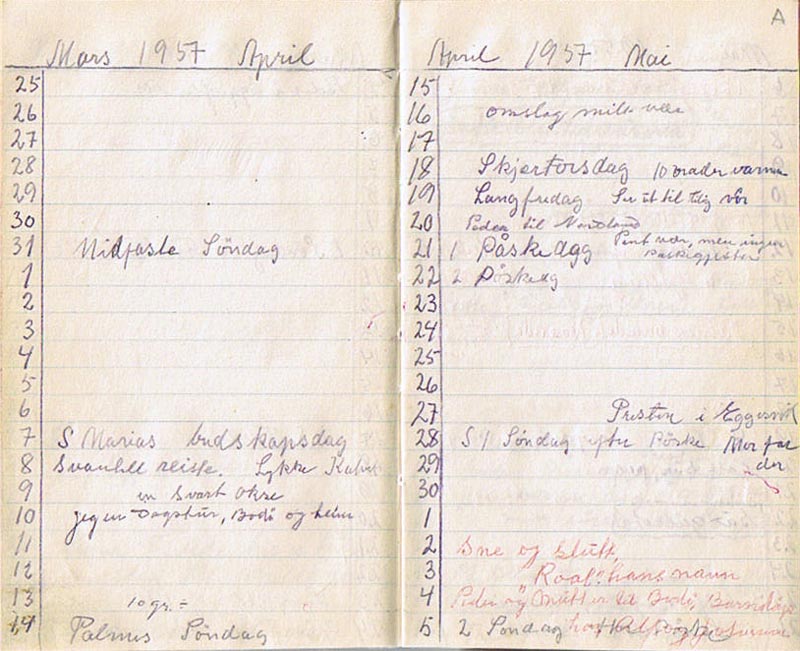 Mars 1957 April
25
26
27
28
29
30
31 Midfaste Söndag
1
2
3
4
5
6
7 S Marias budskapsdag
8 Svanhil reiste. Lykke
9 en Svart Okse
10 jeg en Dagstur, Bodö og
11
12
13 10 gr. ÷
14 Palmes Söndag
A
April 1957 Mai
15
16 omslag mildt vær
17
18 Skjertorsdag 10 grader varme
19 Langfredag Ser ut til tidig vår
20 Peder til Nordland
21 1 Påskedag Pent vær, men ingen
Påskegjester
22 2 Påskedag
23
24
25
26
27 Presten i
28 S 1 Söndag efter Påske Mor far
29 der
30
1
2 Sne og Slutt,
3 "Roal" hans navn
4 Peder og Mutter til Bodö,
5 2 Söndag